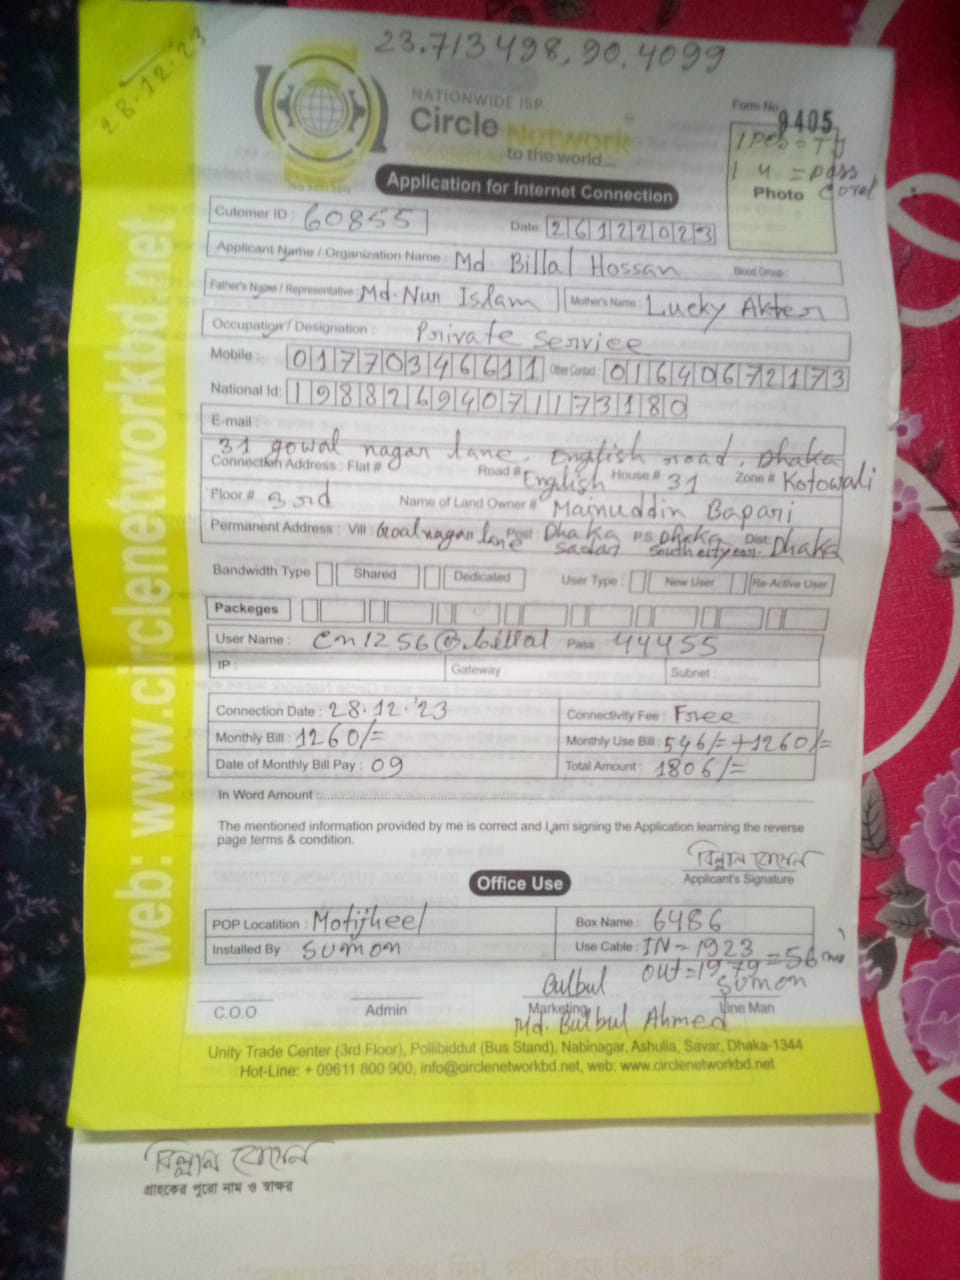 23.713498, 90.4099
28.12.23
NATIONWIDE ISP
Circle Network
to the world...
ISO 9001:2015
Form No. 9405
1 pcs = TJ
1 " = pass
Photo Corel
Application for Internet Connection
Cutomer ID : 60855 Date: 26122023
Applicant Name / Organization Name : Md Billal Hossan Blood Group :
Father's Name / Representative : Md. Nur Islam Mother's Name : Lucky Akter
Occupation / Designation : Private Service
Mobile : 01770346611 Other Contact : 01640672173
National Id: 19882694071173180
E-mail :
31 gowal nagar lane, English road, Dhaka
Connection Address : Flat # Road # English House # 31 Zone # Kotowali
Floor # 3rd Name of Land Owner # Mainuddin Bapari
Permanent Address : Vill : Goalnagar lane Post : Dhaka sadar P.S: Dhaka South city con. Dist: Dhaka
Bandwidth Type Shared Dedicated User Type : New User Re-Active User
Packeges
User Name : cn1256@billal Pass : 44455
IP : Gateway : Subnet :
Connection Date : 28.12.'23 Connectivity Fee : Free
Monthly Bill : 1260/= Monthly Use Bill : 546/= +1260/=
Date of Monthly Bill Pay : 09 Total Amount : 1806/=
In Word Amount :
The mentioned information provided by me is correct and I,am signing the Application learning the reverse
page terms & condition.
বিল্লাল হোসেন
Applicant's Signature
Office Use
POP Locatition : Motijheel Box Name : 6486
Installed By Sumon Use Cable : IN - 1923
out = 1979 = 56 m
Bulbul Sumon
C.O.O Admin Marketing Line Man
Md. Bulbul Ahmed
Unity Trade Center (3rd Floor), Pollibiddut (Bus Stand), Nabinagar, Ashulia, Savar, Dhaka-1344
Hot-Line: + 09611 800 900, info@circlenetworkbd.net, web: www.circlenetworkbd.net
web: www.circlenetworkbd.net
বিল্লাল হোসেন
গ্রাহকের পুরো নাম ও স্বাক্ষর